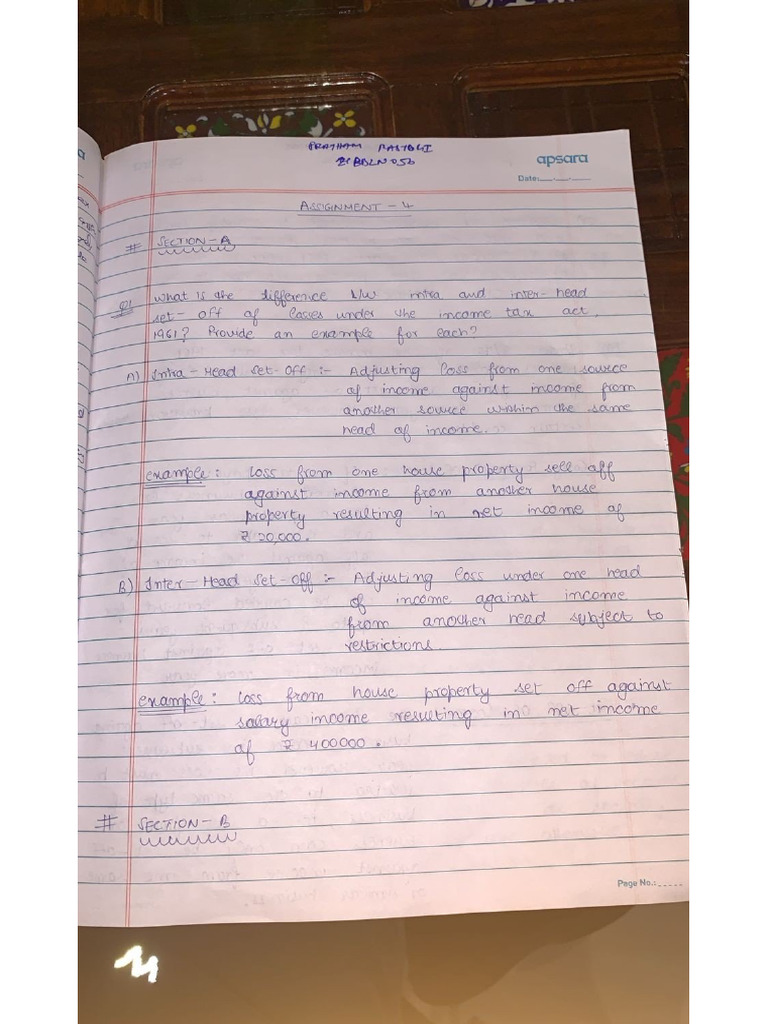 PRATHAM RASTOGI
apsara
Date:__.__.__
ASSIGNMENT - 4
# SECTION - A
Q1 What is the difference b/w intra and inter-head
set-off of losses under the income tax act,
1961? Provide an example for each?
A) Intra-Head Set-Off :- Adjusting loss from one source
of income against income from
another source within the same
head of income.
example: loss from one house property sell off
against income from another house
property resulting in net income of
₹ 20,000.
B) Inter-Head Set-Off :- Adjusting loss under one head
of income against income
from another head subject to
restrictions.
example: loss from house property set off against
salary income resulting in net income
of ₹ 400000.
# SECTION - B
Page No.:_____